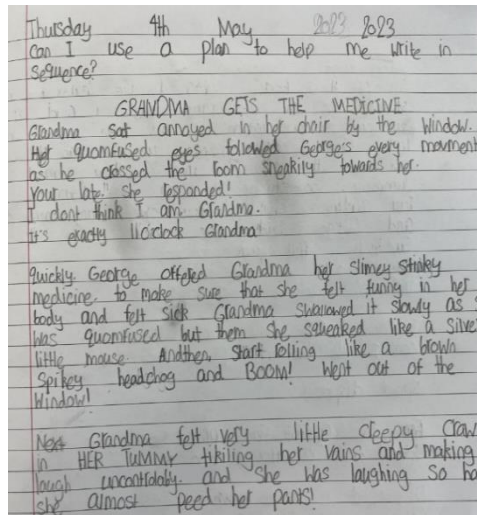 Thursday 4th May 2023 2023
Can I use a plan to help me write in
sequence?
GRANDMA GETS THE MEDICINE
Grandma sat annoyed in her chair by the window.
Her quomfused eyes followed George's every movment
as he crossed the room sneakily towards her.
Your late. she responded!
I dont think I am Grandma.
It's exactly 11o'clock Grandma
Quickly George offered Grandma her slimey stinky
medicine. to make sure that she felt funny in her
body and felt sick Grandma swallowed it slowly as
was quomfused but them she squeaked like a silve
little mouse. Andthen, start rolling like a brown
spikey headghog and BOOM! went out of the
window!
Next Grandma felt very little creepy craw
in HER TUMMY tikiling her vains and making
laugh uncontrolably. and she was laughing so ha
she almost peed her pants!